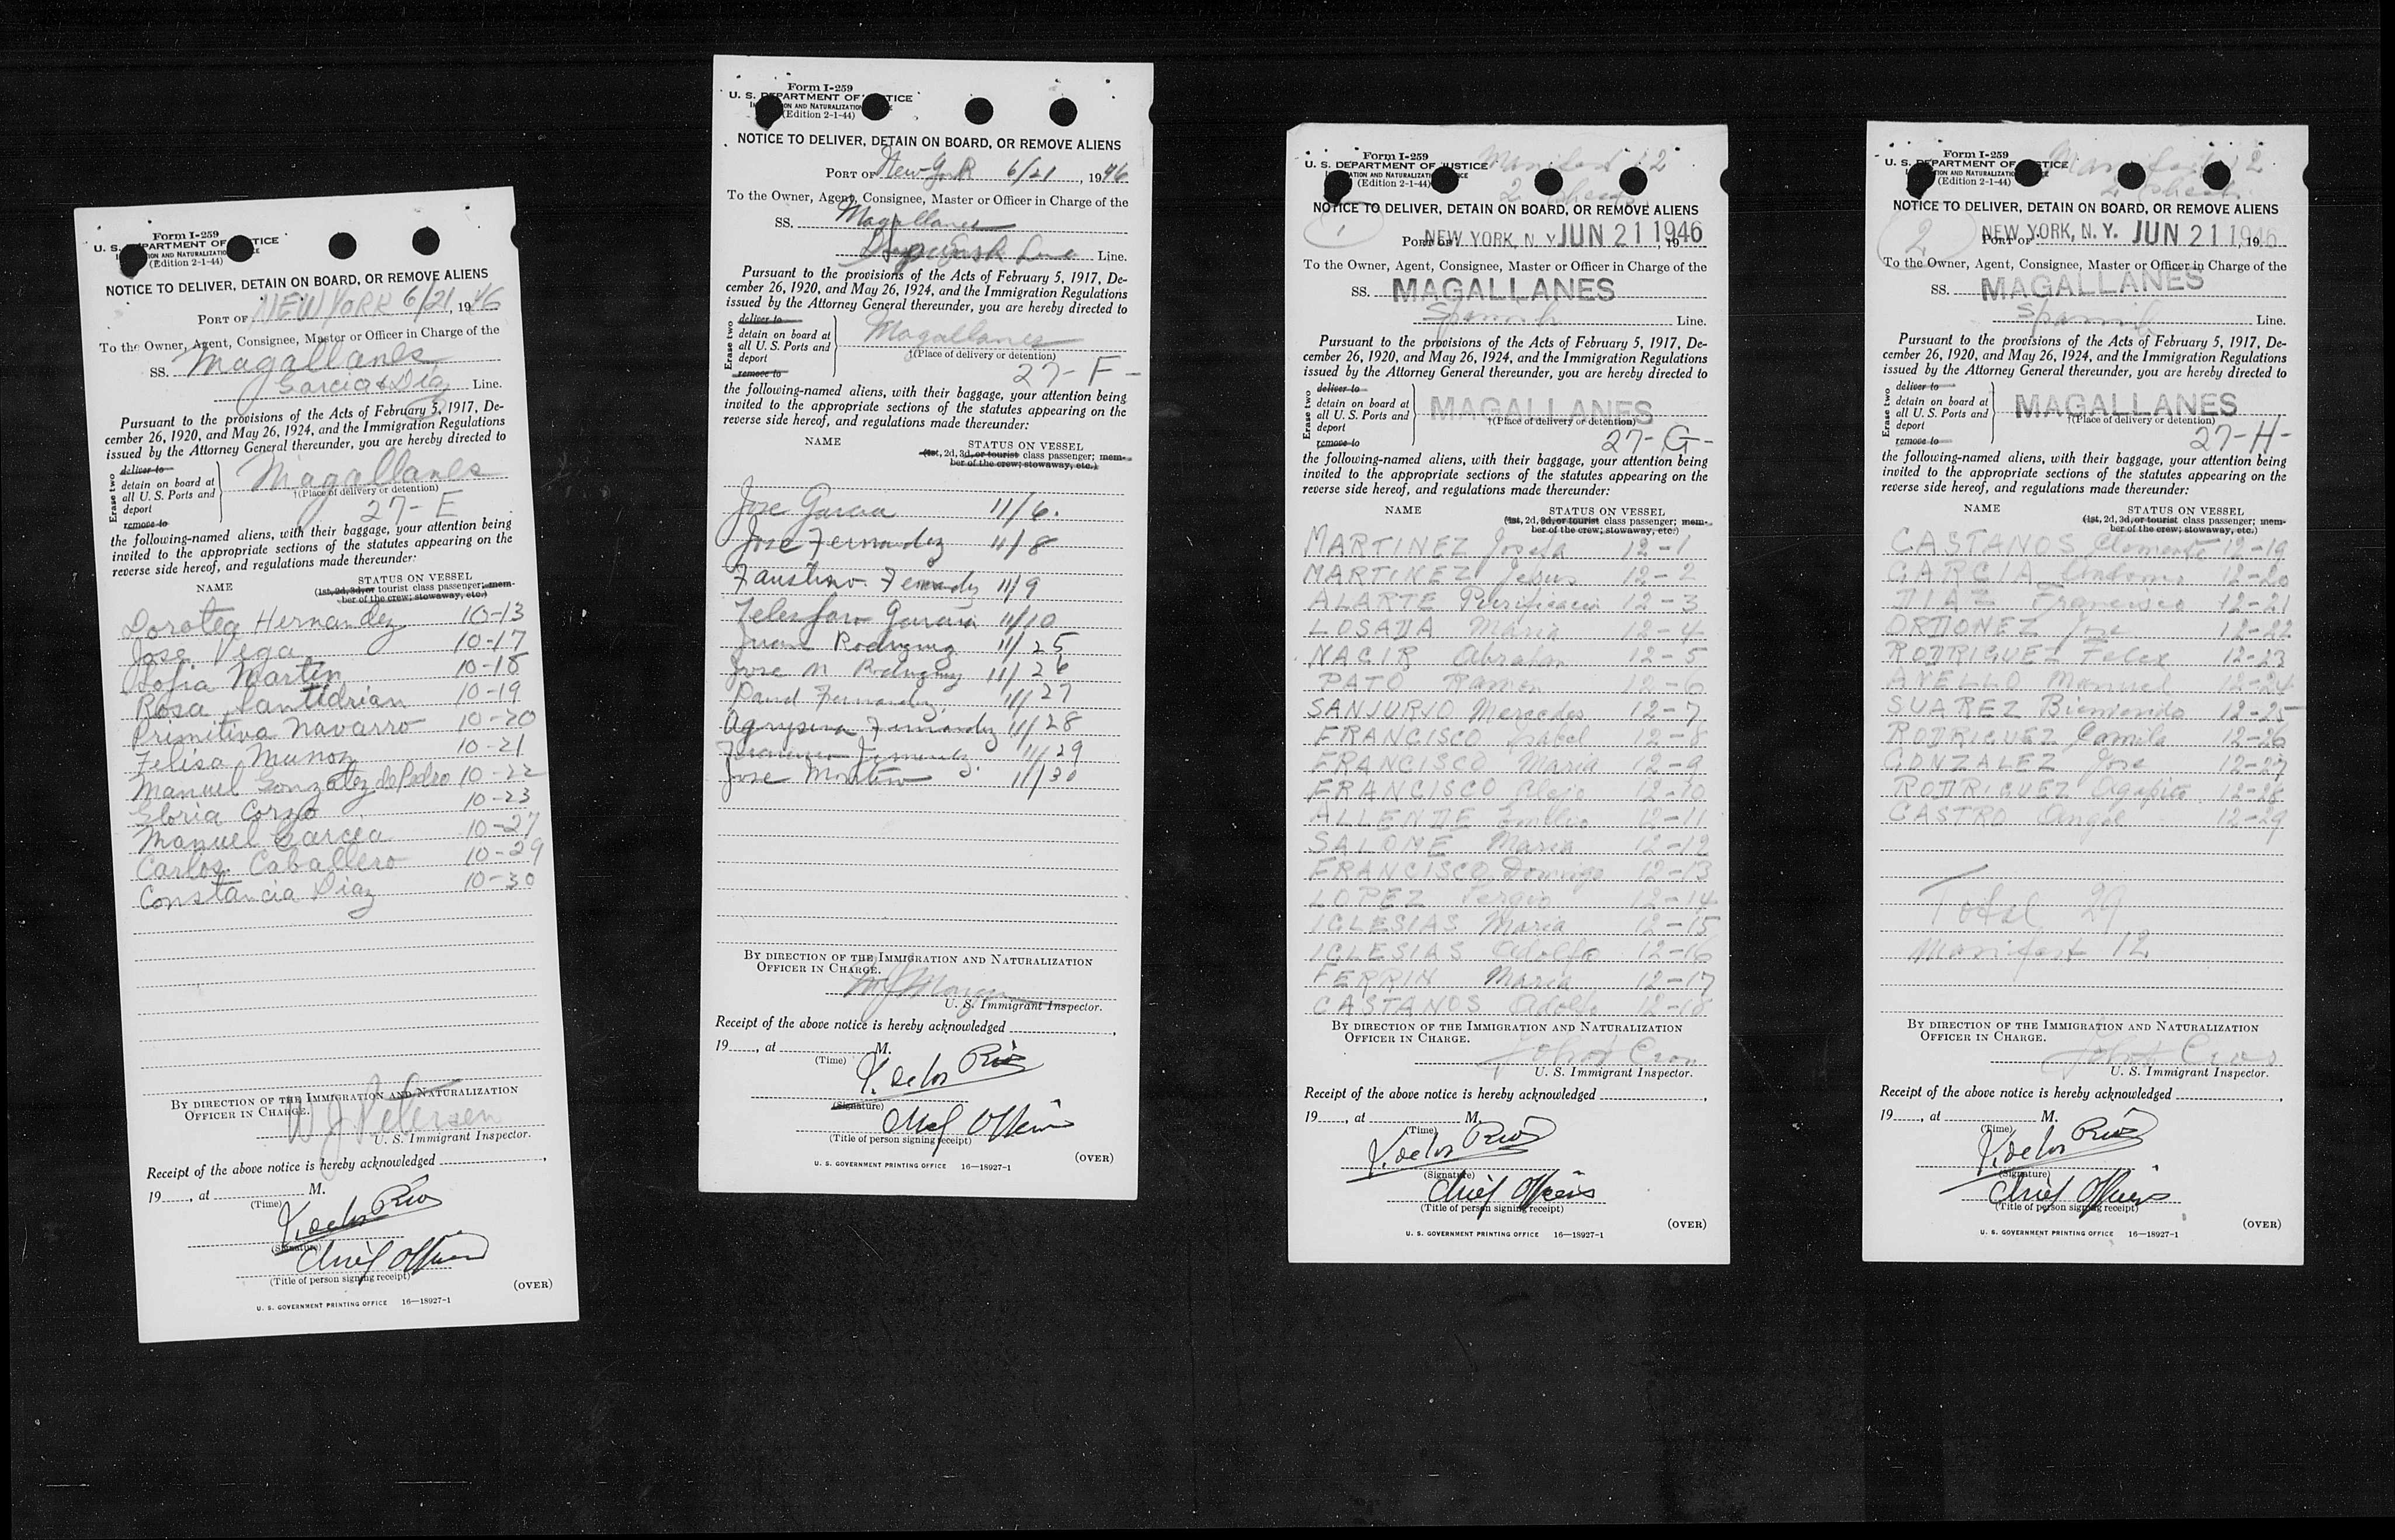 Form I-259
U. S. DEPARTMENT OF JUSTICE
(Edition 2-1-44)
NOTICE TO DELIVER, DETAIN ON BOARD, OR REMOVE ALIENS
PORT OF NEW YORK 6/21, 1946
To the Owner, Agent, Consignee, Master or Officer in Charge of the
SS. Magallanes
Garcia & Diaz Line.
Pursuant to the provisions of the Acts of February 5, 1917, De-
cember 26, 1920, and May 26, 1924, and the Immigration Regulations
issued by the Attorney General thereunder, you are hereby directed to
Erase two
deliver to
detain on board at
all U. S. Ports and
deport
remove to
Magallanes
†(Place of delivery or detention)
27-E
the following-named aliens, with their baggage, your attention being
invited to the appropriate sections of the statutes appearing on the
reverse side hereof, and regulations made thereunder:
NAME STATUS ON VESSEL
(1st, 2d, 3d, or tourist class passenger; mem-
ber of the crew; stowaway, etc.)
Dorotea Hernandez 10-13
Jose Vega 10-17
Sofia Martin 10-18
Rosa Santidrian 10-19
Primitiva Navarro 10-20
Felisa Munoz 10-21
Manuel Gonzalez de Pedro 10-22
Gloria Corzo 10-23
Manuel Garcia 10-27
Carlos Caballero 10-29
Constancia Diaz 10-30
BY DIRECTION OF THE IMMIGRATION AND NATURALIZATION
OFFICER IN CHARGE.
W J Petersen
U. S. Immigrant Inspector.
Receipt of the above notice is hereby acknowledged
19, at M.
(Time)
V. de los Rios
(Signature)
Chief Officer
(Title of person signing receipt)
(OVER)
U. S. GOVERNMENT PRINTING OFFICE 16—18927-1
Form I-259
U. S. DEPARTMENT OF JUSTICE
(Edition 2-1-44)
NOTICE TO DELIVER, DETAIN ON BOARD, OR REMOVE ALIENS
PORT OF New York 6/21, 1946
To the Owner, Agent, Consignee, Master or Officer in Charge of the
SS. Magallanes
Line.
Pursuant to the provisions of the Acts of February 5, 1917, De-
cember 26, 1920, and May 26, 1924, and the Immigration Regulations
issued by the Attorney General thereunder, you are hereby directed to
Erase two
deliver to
detain on board at
all U. S. Ports and
deport
remove to
Magallanes
†(Place of delivery or detention)
27-F-
the following-named aliens, with their baggage, your attention being
invited to the appropriate sections of the statutes appearing on the
reverse side hereof, and regulations made thereunder:
NAME STATUS ON VESSEL
(1st, 2d, 3d, or tourist class passenger; mem-
ber of the crew; stowaway, etc.)
Jose Garcia 11/6.
Jose Fernandez 11/8
Faustino Fernandez 11/9
Telesforo Garcia 11/10
Juan Rodriguez 11/25
Jose M Rodriguez 11/26
David Fernandez 11/27
Agripina Fernandez 11/28
Francisco 11/29
Jose 11/30
BY DIRECTION OF THE IMMIGRATION AND NATURALIZATION
OFFICER IN CHARGE.
U. S. Immigrant Inspector.
Receipt of the above notice is hereby acknowledged
19, at M.
(Time)
V. de los Rios
(Signature)
Chief Officer
(Title of person signing receipt)
(OVER)
U. S. GOVERNMENT PRINTING OFFICE 16—18927-1
Form I-259 Manifest 12
U. S. DEPARTMENT OF JUSTICE
(Edition 2-1-44) 2 sheets
NOTICE TO DELIVER, DETAIN ON BOARD, OR REMOVE ALIENS
1
PORT OF NEW YORK, N. Y. JUN 21 1946
To the Owner, Agent, Consignee, Master or Officer in Charge of the
SS. MAGALLANES
Spanish Line.
Pursuant to the provisions of the Acts of February 5, 1917, De-
cember 26, 1920, and May 26, 1924, and the Immigration Regulations
issued by the Attorney General thereunder, you are hereby directed to
Erase two
deliver to
detain on board at
all U. S. Ports and
deport
remove to
MAGALLANES
†(Place of delivery or detention)
27-G-
the following-named aliens, with their baggage, your attention being
invited to the appropriate sections of the statutes appearing on the
reverse side hereof, and regulations made thereunder:
NAME STATUS ON VESSEL
(1st, 2d, 3d, or tourist class passenger; mem-
ber of the crew; stowaway, etc.)
MARTINEZ Josefa 12-1
MARTINEZ Jesus 12-2
ALARTE Purificacin 12-3
LOSADA Maria 12-4
NACIR Abrahan 12-5
PATO Ramon 12-6
SANJURJO Mercedes 12-7
FRANCISCO Isabel 12-8
FRANCISCO Maria 12-9
FRANCISCO Clejo 12-10
ALLENDE Emilio 12-11
SALOME Maria 12-12
FRANCISCO Domingo 12-13
LOPEZ Sergio 12-14
IGLESIAS Maria 12-15
IGLESIAS Adolfo 12-16
FERRIN Maria 12-17
CASTANOS Adolfo 12-18
BY DIRECTION OF THE IMMIGRATION AND NATURALIZATION
OFFICER IN CHARGE.
U. S. Immigrant Inspector.
Receipt of the above notice is hereby acknowledged
19, at M.
(Time)
V. de los Rios
(Signature)
Chief Officer
(Title of person signing receipt)
(OVER)
U. S. GOVERNMENT PRINTING OFFICE 16—18927-1
Form I-259 Manifest 12
U. S. DEPARTMENT OF JUSTICE
(Edition 2-1-44) 2 sheets
NOTICE TO DELIVER, DETAIN ON BOARD, OR REMOVE ALIENS
2
PORT OF NEW YORK, N. Y. JUN 21 1946
To the Owner, Agent, Consignee, Master or Officer in Charge of the
SS. MAGALLANES
Spanish Line.
Pursuant to the provisions of the Acts of February 5, 1917, De-
cember 26, 1920, and May 26, 1924, and the Immigration Regulations
issued by the Attorney General thereunder, you are hereby directed to
Erase two
deliver to
detain on board at
all U. S. Ports and
deport
remove to
MAGALLANES
†(Place of delivery or detention)
27-H-
the following-named aliens, with their baggage, your attention being
invited to the appropriate sections of the statutes appearing on the
reverse side hereof, and regulations made thereunder:
NAME STATUS ON VESSEL
(1st, 2d, 3d, or tourist class passenger; mem-
ber of the crew; stowaway, etc.)
CASTANOS Clemente 12-19
GARCIA Antonio 12-20
DIAZ Francisco 12-21
ORDONEZ Jose 12-22
RODRIGUEZ Felix 12-23
ANELLO Manuel 12-24
SUAREZ Bienvenido 12-25
RODRIGUEZ Camila 12-26
GONZALEZ Jose 12-27
RODRIGUEZ Agapito 12-28
CASTRO Angel 12-29
Total 29
Manifest 12
BY DIRECTION OF THE IMMIGRATION AND NATURALIZATION
OFFICER IN CHARGE.
U. S. Immigrant Inspector.
Receipt of the above notice is hereby acknowledged
19, at M.
(Time)
V. de los Rios
(Signature)
Chief Officer
(Title of person signing receipt)
(OVER)
U. S. GOVERNMENT PRINTING OFFICE 16—18927-1